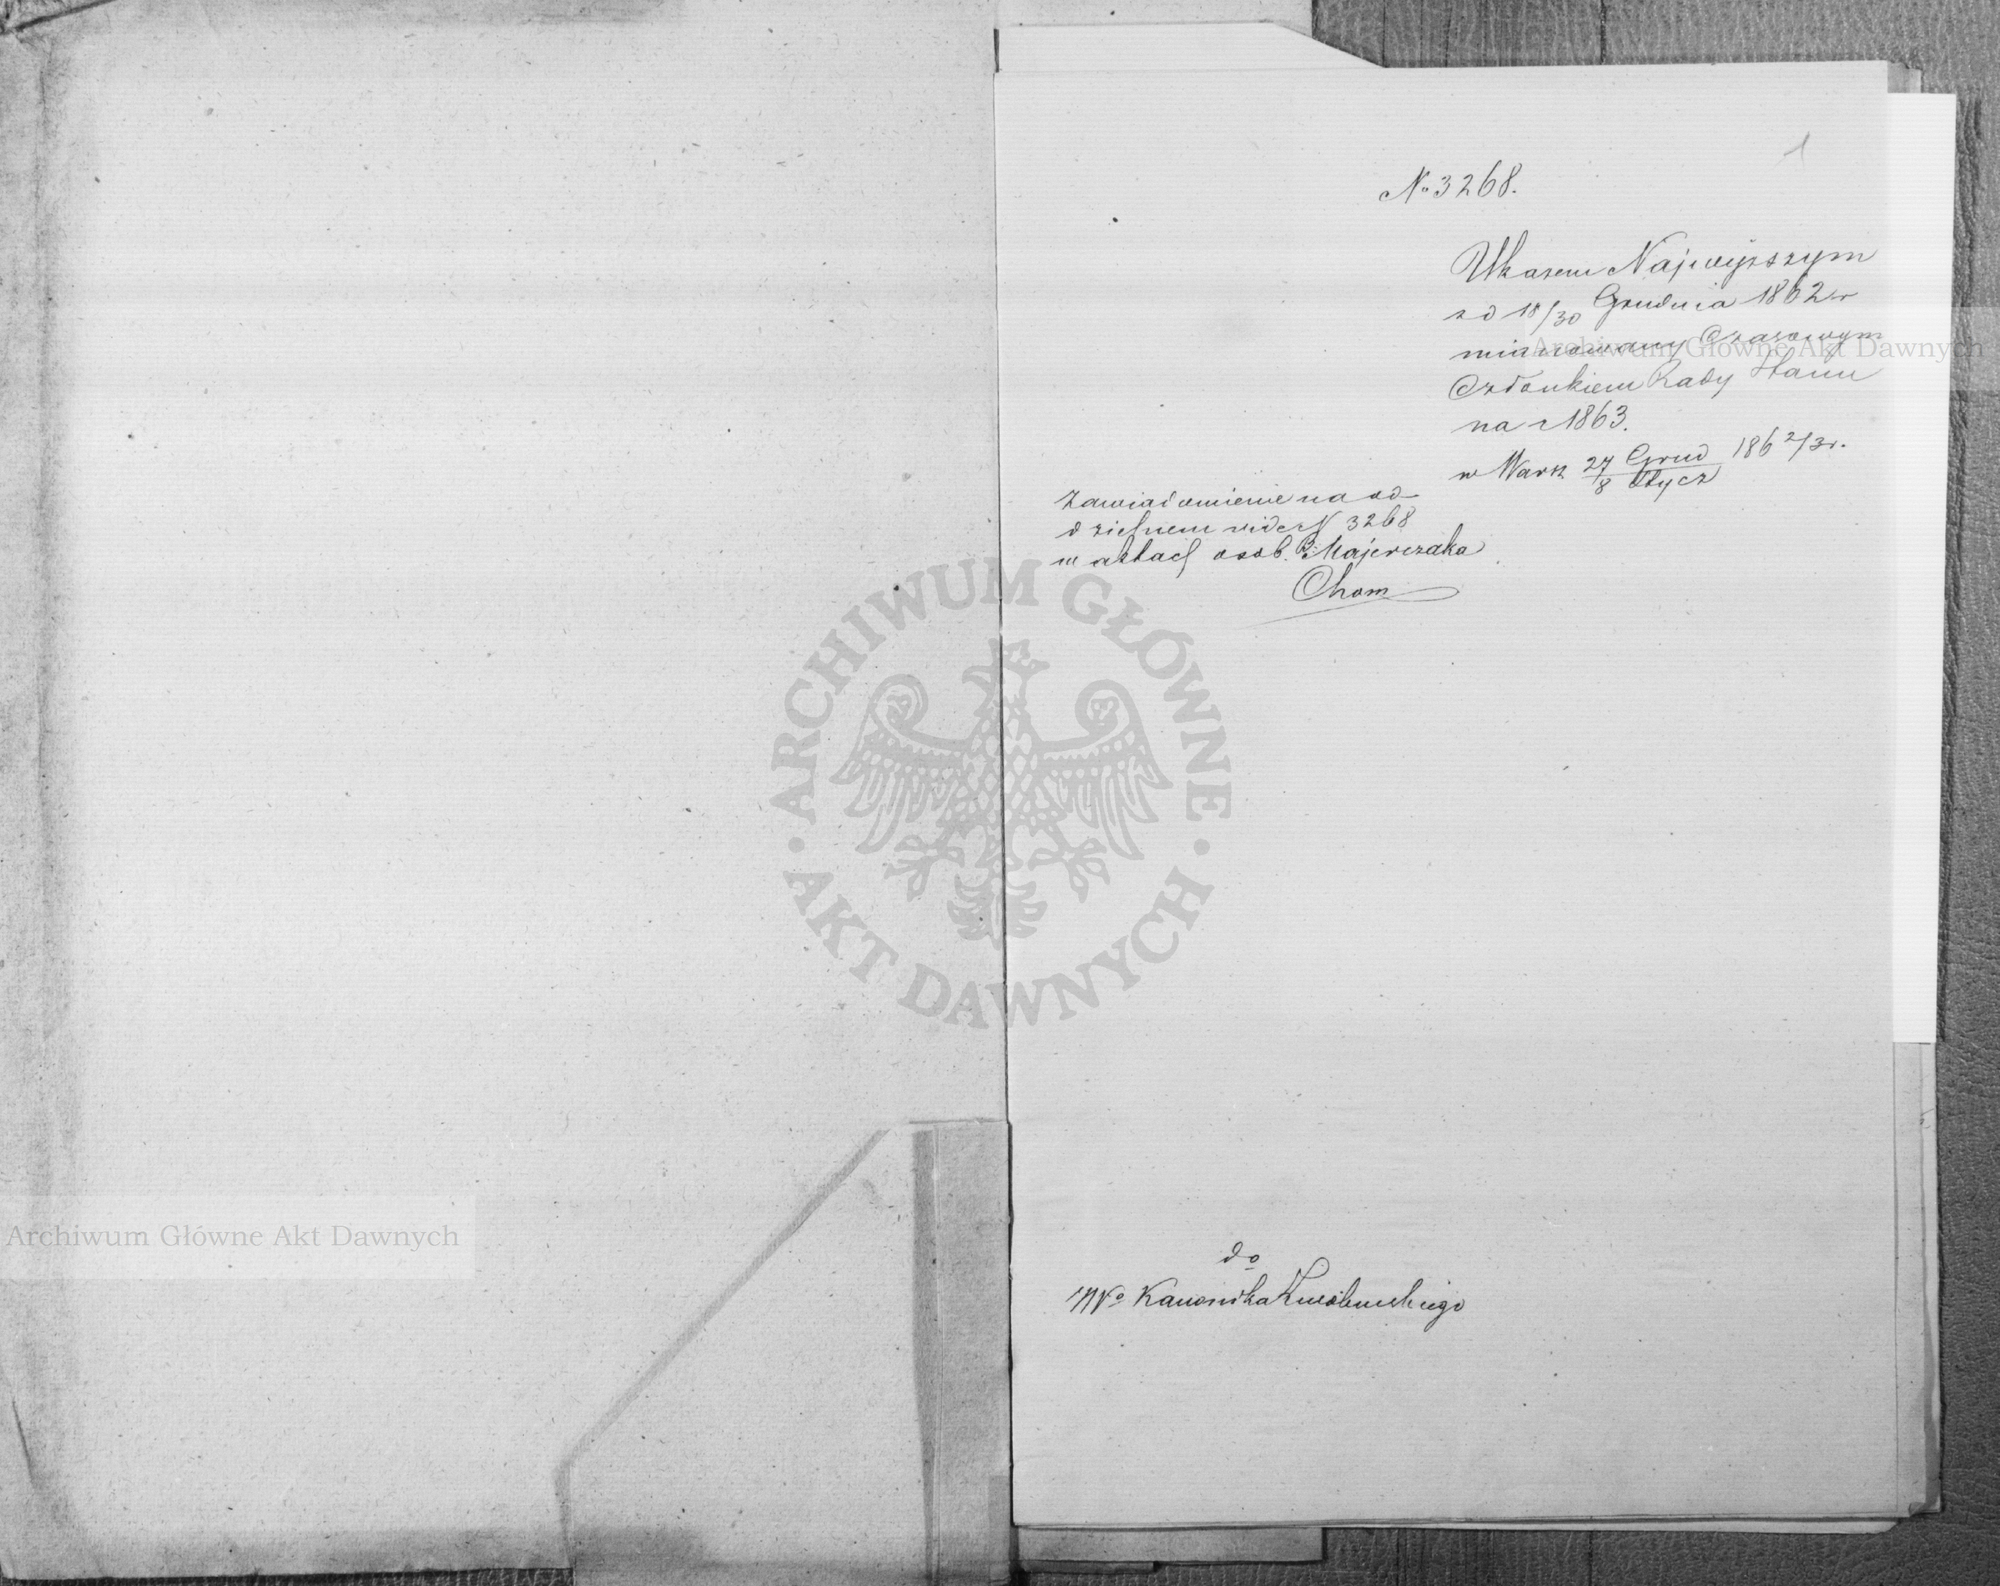 1
№ 3268.
Ukazem Najwyższym
z d 18/30 Grudnia 1862 r
mianowany Czasowym
Członkiem Rady Stanu
na r 1863.
w Warsz 27 Grud / 8 Stycz 186 2/3 r.
Zawiadomienie na od-
dzielnem vide N 3268
w aktach osob. B. Majerczaka
Chom
do
Kanonika
ARCHIWUM GŁÓWNE
AKT DAWNYCH
Archiwum Główne Akt Dawnych
Archiwum Główne Akt Dawnych